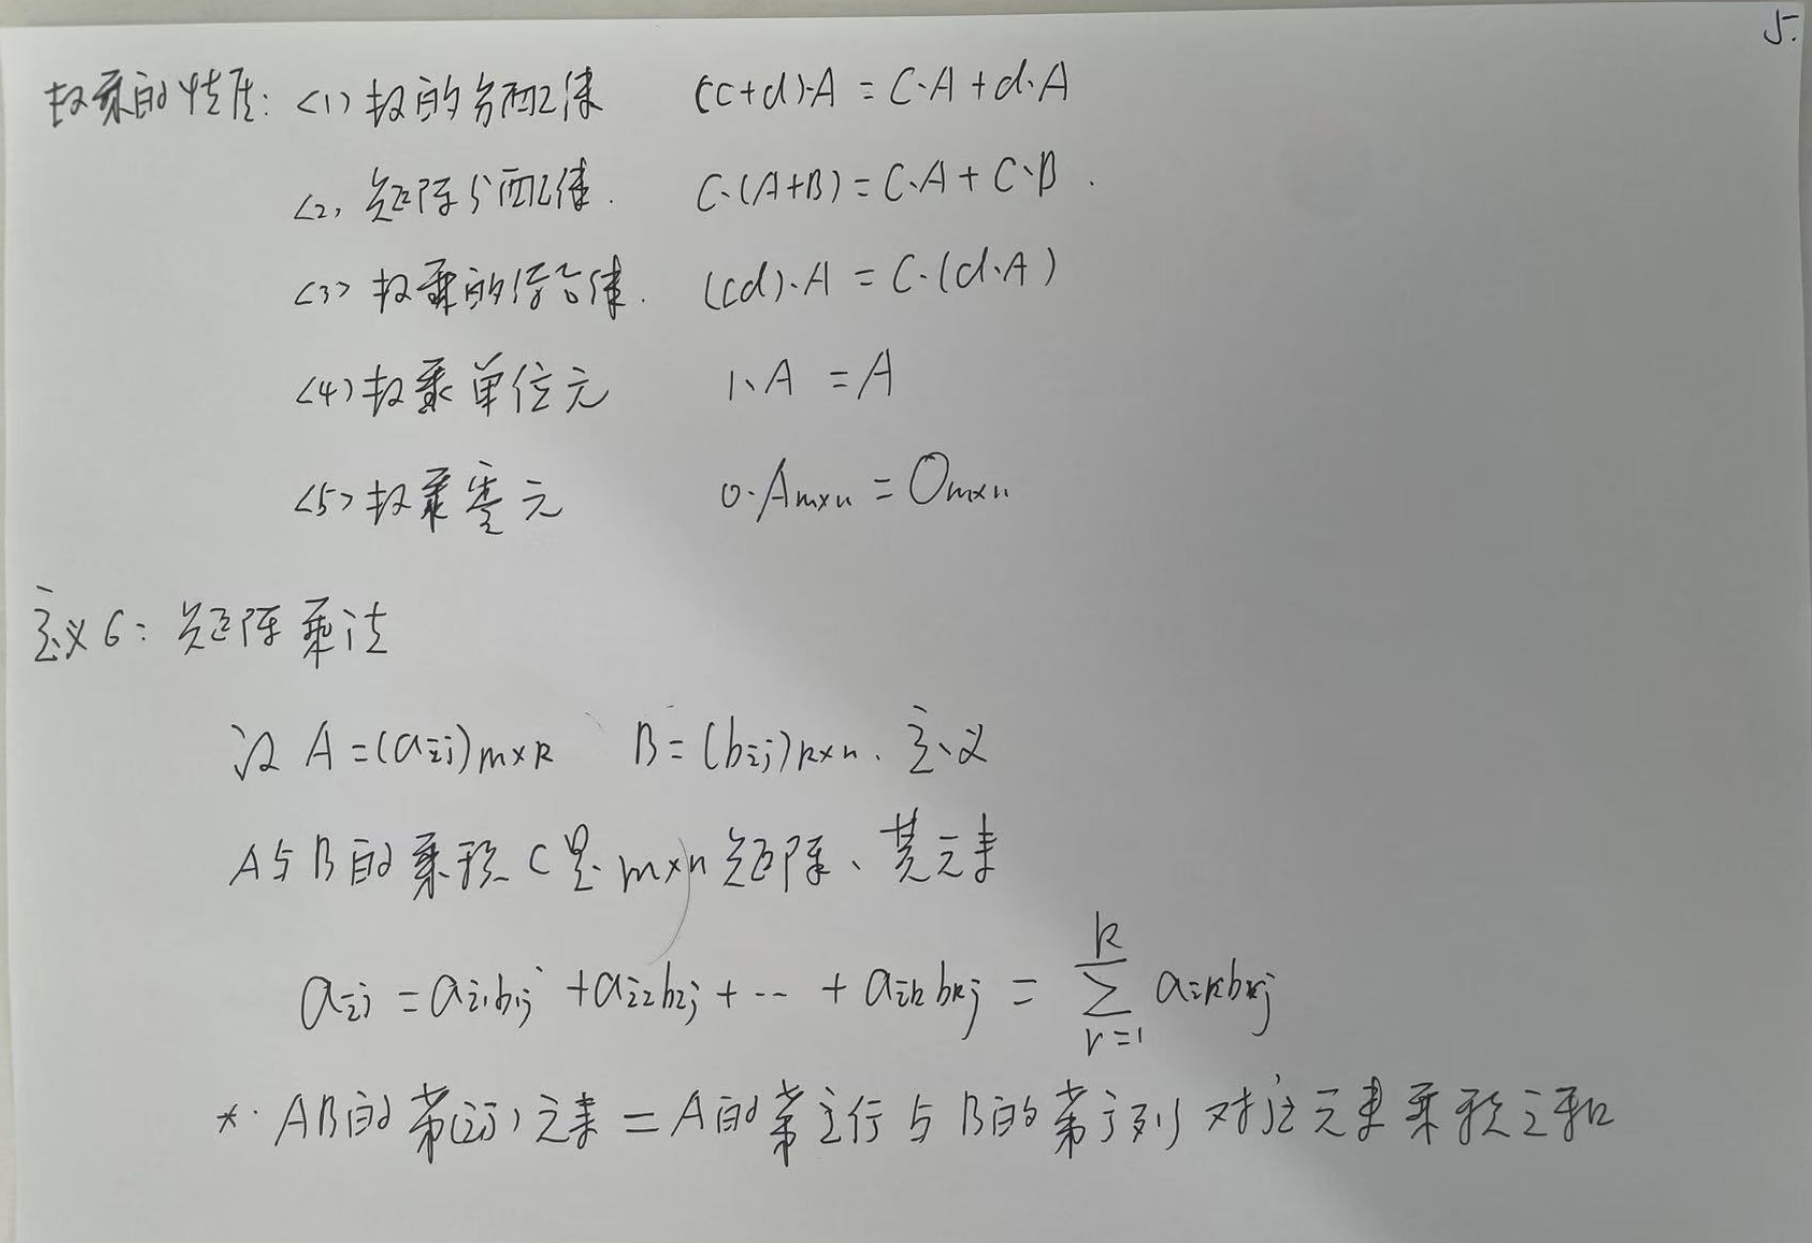 5.
数乘的性质: <1> 数的分配律 (c+d)·A = C·A + d·A
<2> 矩阵分配律. C·(A+B) = C·A + C·B.
<3> 数乘的结合律. (cd)·A = C·(d·A)
<4> 数乘单位元 1·A = A
<5> 数乘零元 0·Am×n = Om×n
定义6: 矩阵乘法
设 A=(aij)m×k B=(bij)k×n. 定义
A与B的乘积C是m×n矩阵、其元素
aij = ai1b1j + ai2b2j + ··· + aikbkj = ∑_{r=1}^{k} aikbkj
*. AB的第(ij)元素 = A的第i行与B的第j列对应元素乘积之和